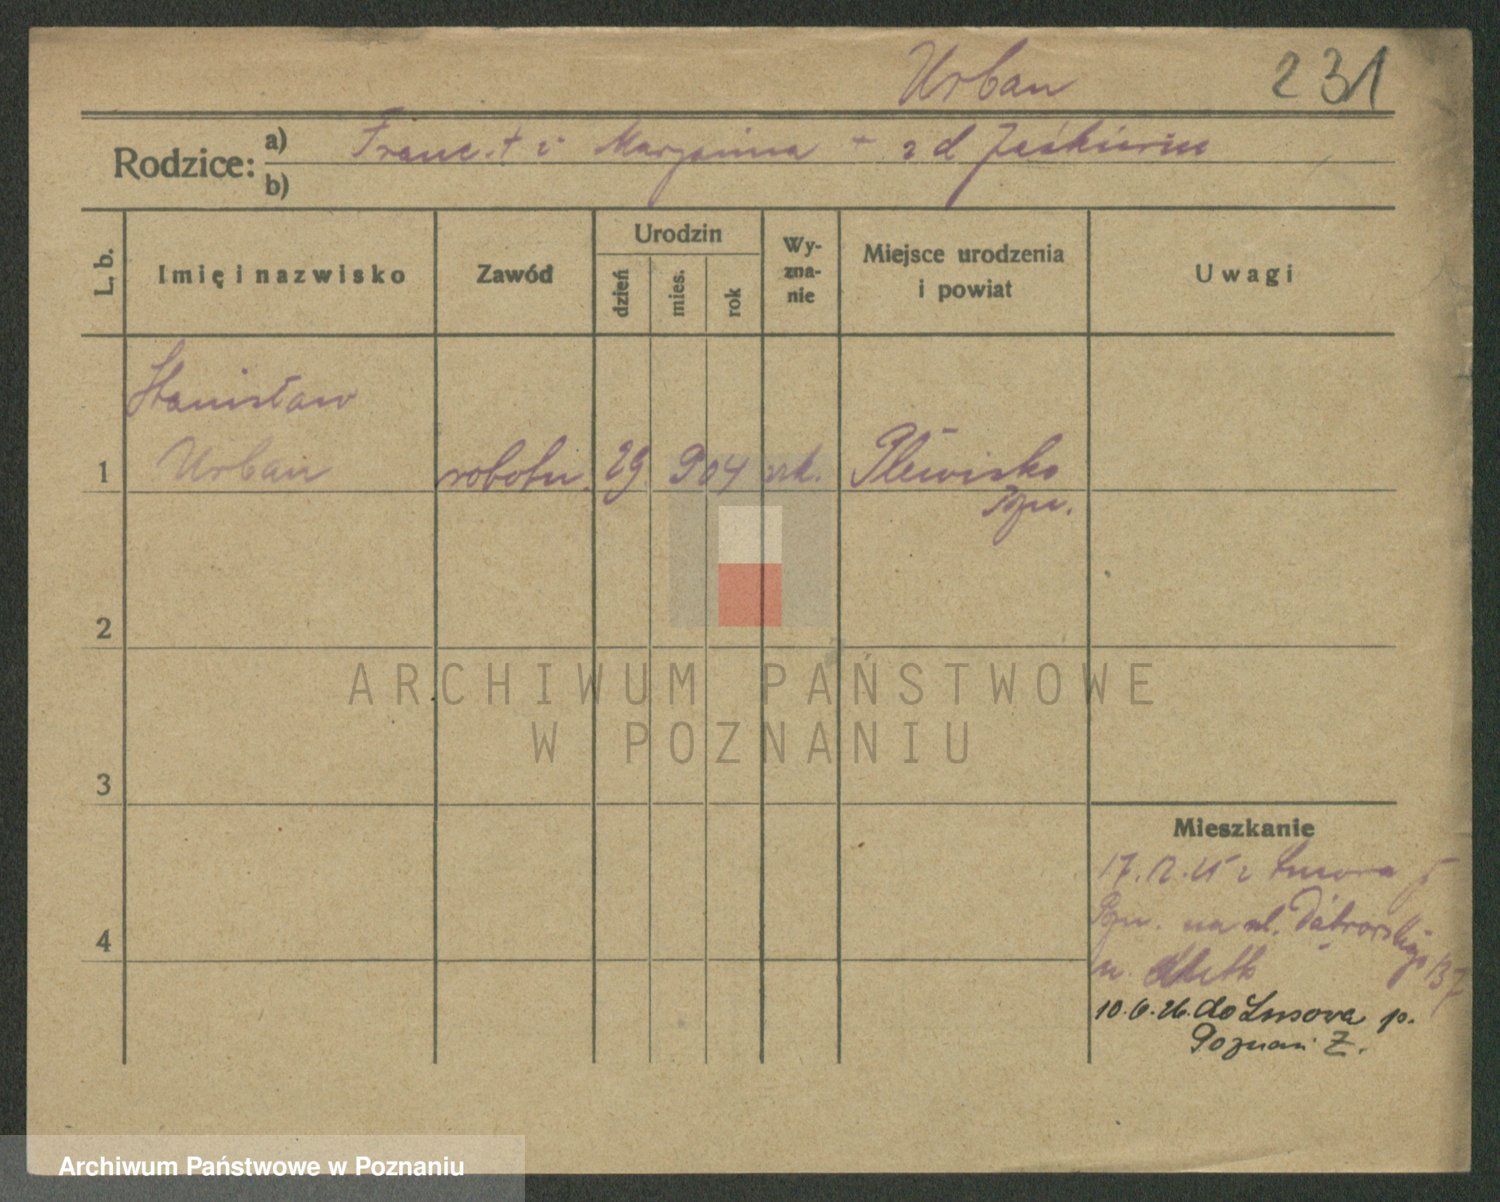 Urban 231
Rodzice: a) Franc. + i Maryanna + z d
b)
L. b. Imię i nazwisko Zawód Urodzin dzień mies. rok Wy-zna-nie Miejsce urodzenia i powiat Uwagi
Stanisław
1 Urban robotn. 29. 9 04 rk. Plewisko
Pzn.
2
3
Mieszkanie
17.12.25 z Lusowa p
Pzn. na ul. Dąbrowskiego 137
4
u.
10.6.26. do Lusowa p.
Poznań Z.
ARCHIWUM PAŃSTWOWE
W POZNANIU
Archiwum Państwowe w Poznaniu